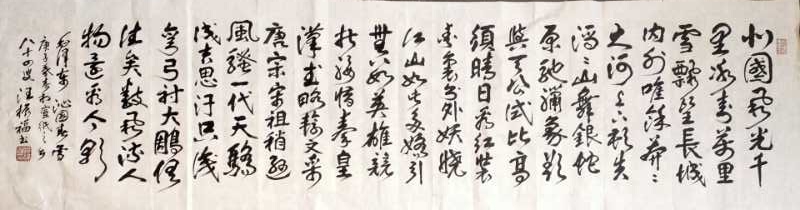 北國風光千
里冰封萬里
雪飄望長城
内外唯餘莽々
大河上下頓失
滔々山舞銀蛇
原馳蠟象欲
與天公試比高
須晴日看紅裝
素裹分外妖嬈
江山如此多嬌引
無數英雄競
折腰惜秦皇
漢武略輸文采
唐宗宋祖稍遜
風騷一代天驕
成吉思汗只識
彎弓射大雕俱
往矣數風流人
物還看今朝
毛澤東沁園春雪
庚子春
八十四叟汪振福書